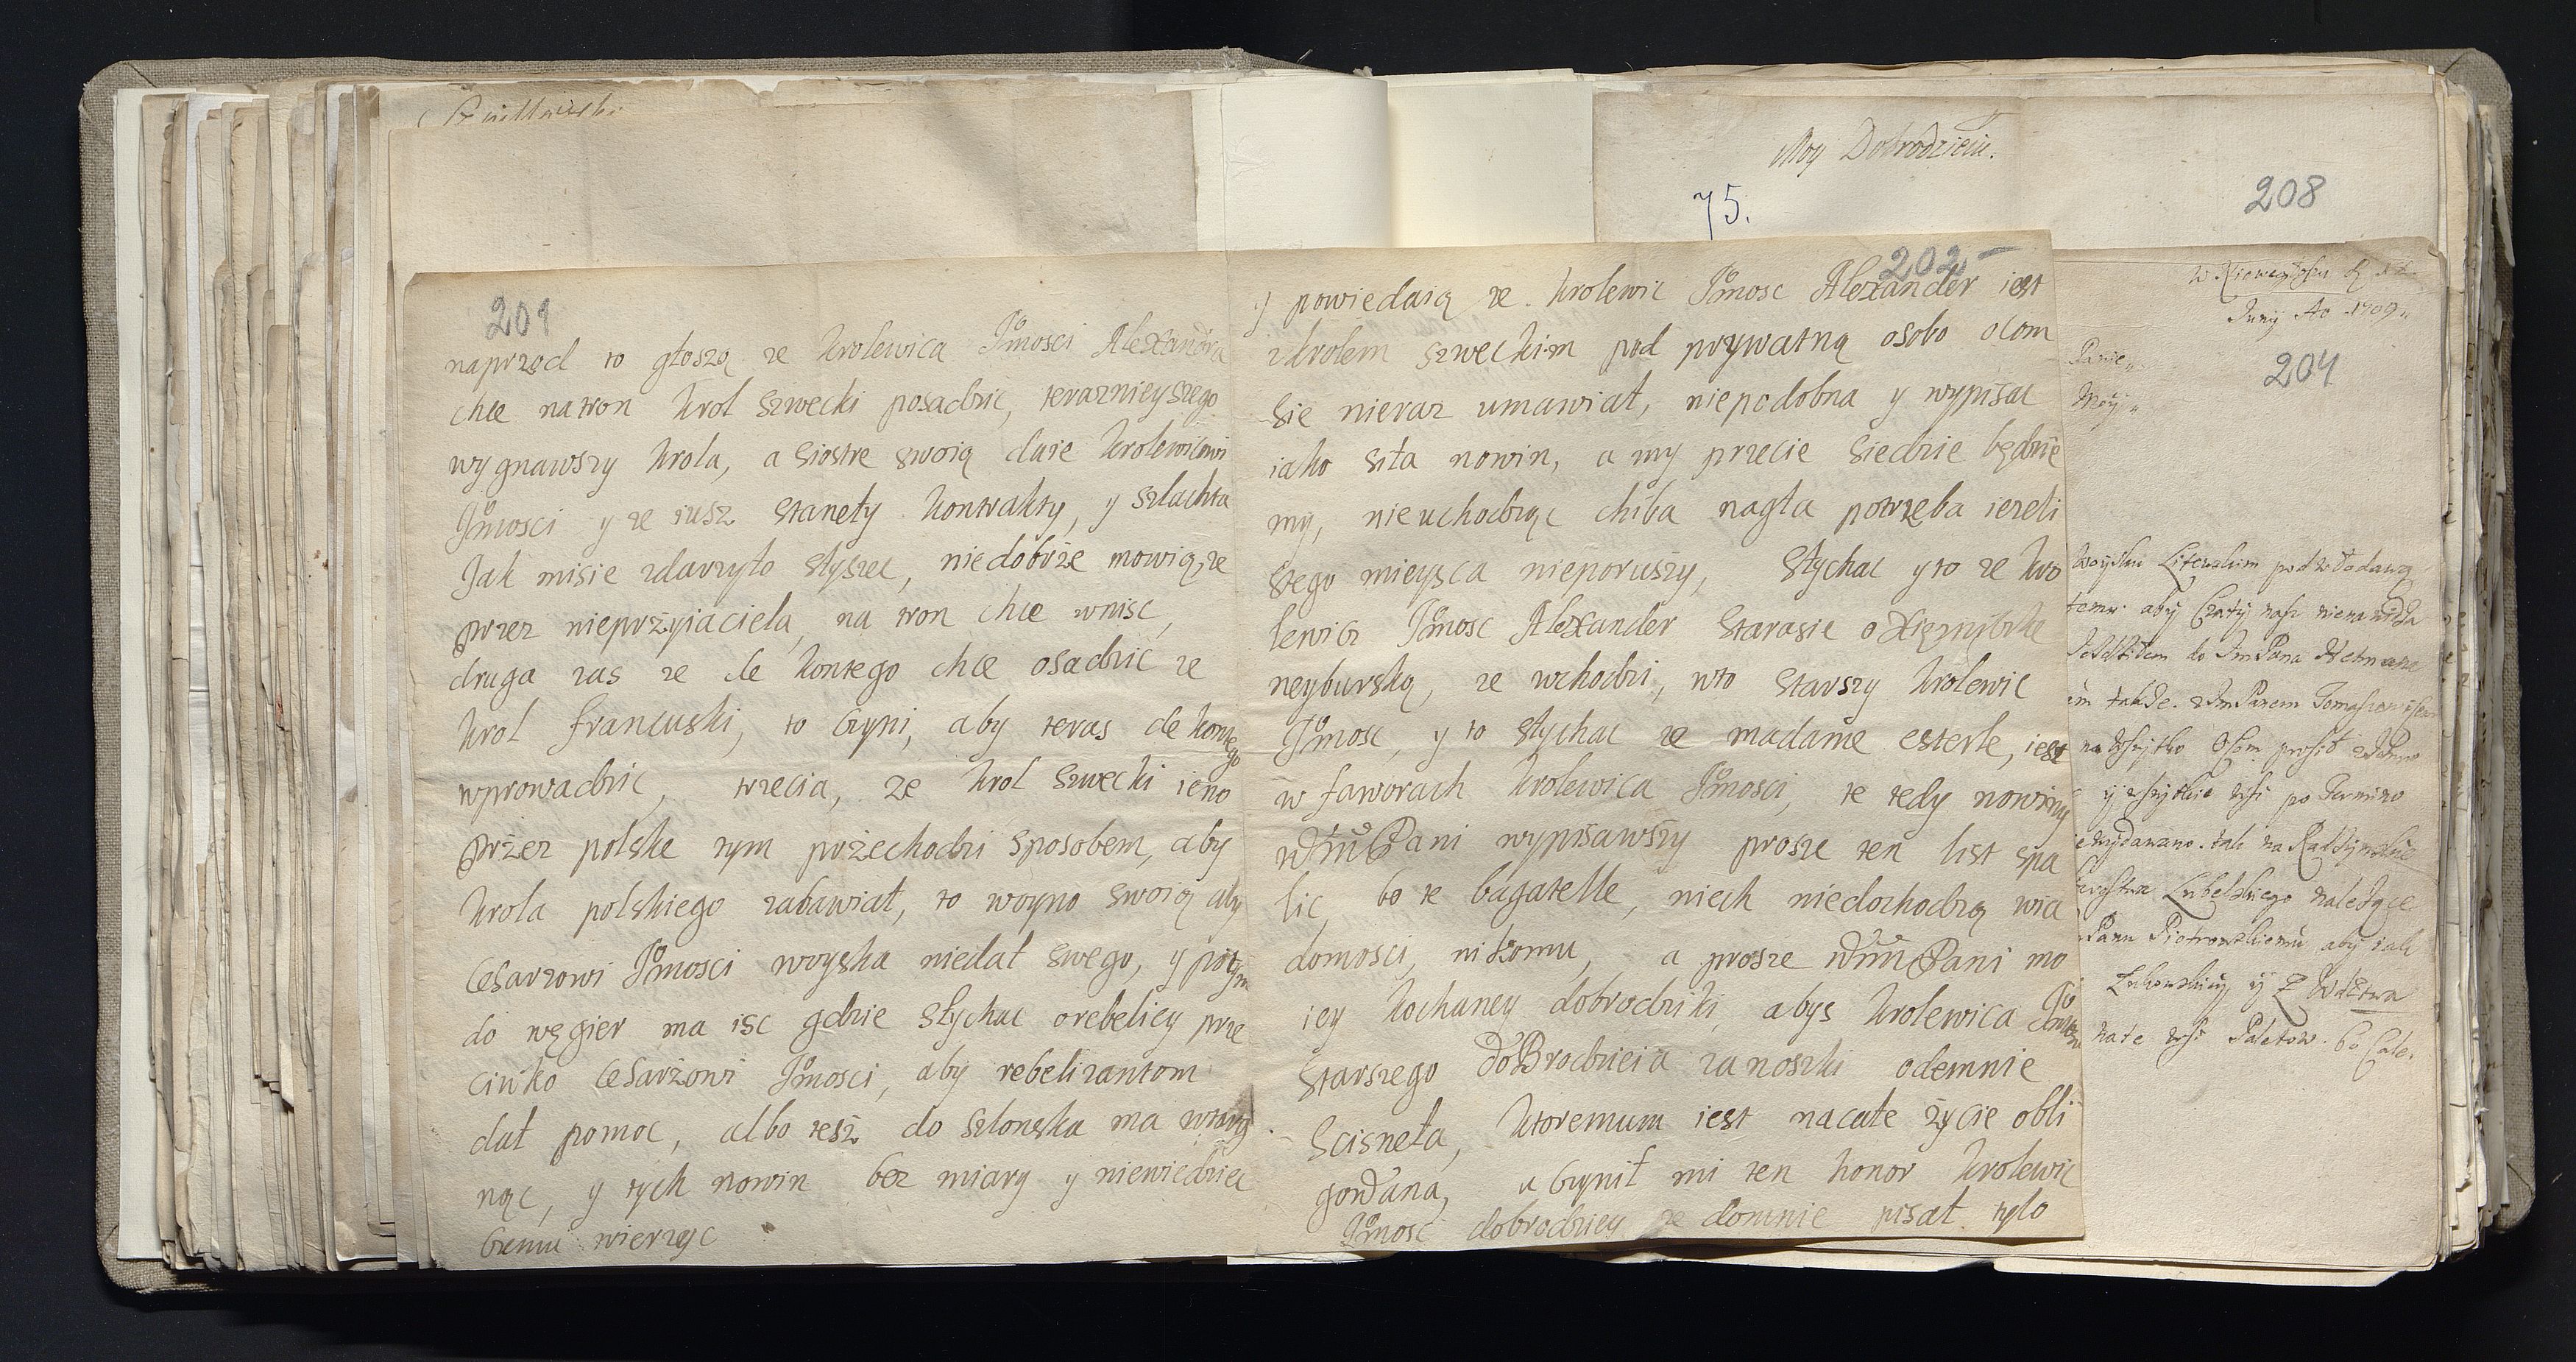 Moy Dobrodzieiu.
75.
208
201
naprzod to głoszą ze Krolewica Jmosci Alexandra
chce natron Krol Szwecki posadzic, teraznieyszego
wygnawszy Krola, a Siostre swoią daie Krolewicowi
Jmosci y ze iusz stanęły Kontrakty, y szlachta
Jak misie zdarzyło słyszec, niedobrze mowią, ze
przez nieprzyiaciela, na tron chce wnisc,
druga zas ze de Kontego chce osadzic ze
Krol francuski, to czyni, aby teras de Kontego
wprowadzic, trzecia, ze Krol Szwecki ieno
przez polske tym przechodzi sposobem, aby
Krola polskiego zabawiał, to woyno swoią aby
Cesarzowi Jmosci woyska niedał swego, y potym
do węgier ma isc gdzie słychac orebeliey prze
ciwko Cesarzowi Jmosci, aby rebelizantom
dał pomoc, albo tesz do szlonska ma wtarg
nąc, y tych nowin bez miary y niewiedziec
czemu wierzyc
202
y powiedaią ze Krolewic Jmosc Alexander iest
zkrolem szweckim pod prywatną osobo ocom
sie nieraz umawiał, niepodobna y wypisac
iako siła nowin, a my przecie siedzie będzie
my, nieuchodząc chiba nagła potrzeba iezeli
stego mieysca nieporuszy, Słychac y to ze Kro
lewicz Jmosc Alexander starasie o Xięzniczke
neyburską, ze wchodzi, wto starszy Krolewic
Jmosc, y to słychac ze madame esterle, iest
w faworach Krolewica Jmosci, te tedy nowiny
WmPani wypisawszy prosze ten list spa
lic, bo te bagatelle, niech niedochodzą wia
domosci, nikomu, a prosze WmPani mo
iey Kochaney dobrodziki, abys Krolewica Jmosci
starszego doBrodzieia zanoszki odemnie
Scisneła, Ktoremum iest nacałe życie obli
gowana, uczynił mi ten honor Krolewic
Jmosc dobrodziey ze domnie pisał tylo
Juny Ao 1709
204
Panie
Moy
woysku Litewskim pod Włodawą
temu aby Czaty nasz nienawidza
do JmPana Hetmana
im także z JmPanem
po Termino
Lubelskiego należące
Panu Piotrowskiemu aby iak